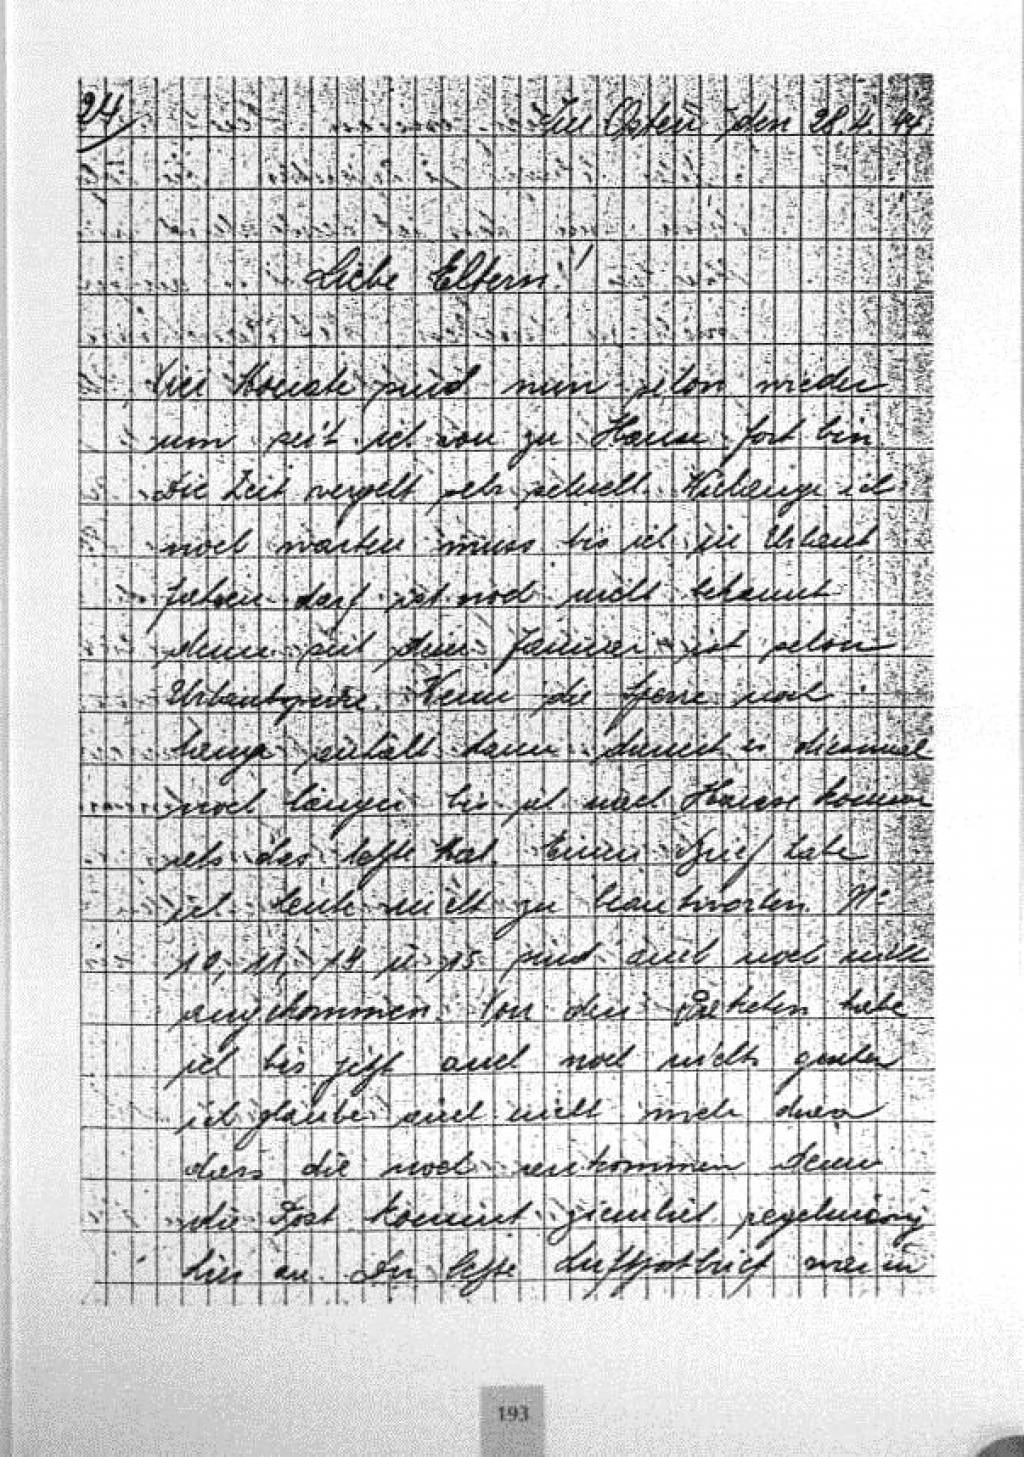 24.
Im Osten, den 28.4.44.
Liebe Eltern!
Vier Monate sind nun schon wieder
um seit ich von zu Hause fort bin
Die Zeit vergeht sehr schnell. Wielange ich
noch warten muss bis ich in Urlaub
fahren darf ist noch nicht bekannt
denn seit dem Januar ist schon
Urlaubsperre. Wenn die Sperre noch
lange anhält dann dauert es diesmal
noch länger bis ich nach Hause komme
als das letzte Mal. Einen Brief habe
ich heute nicht zu beantworten. Nr
10, 11, 14 u. 15 sind auch noch nicht
angekommen. Von den Paketen habe
ich bis jetzt auch noch nichts
ich glaube auch nicht mehr daran
dass die noch ankommen denn
die Post kommt ziemlich regelmässig
hier an. Der letzte Luftpostbrief war in
193